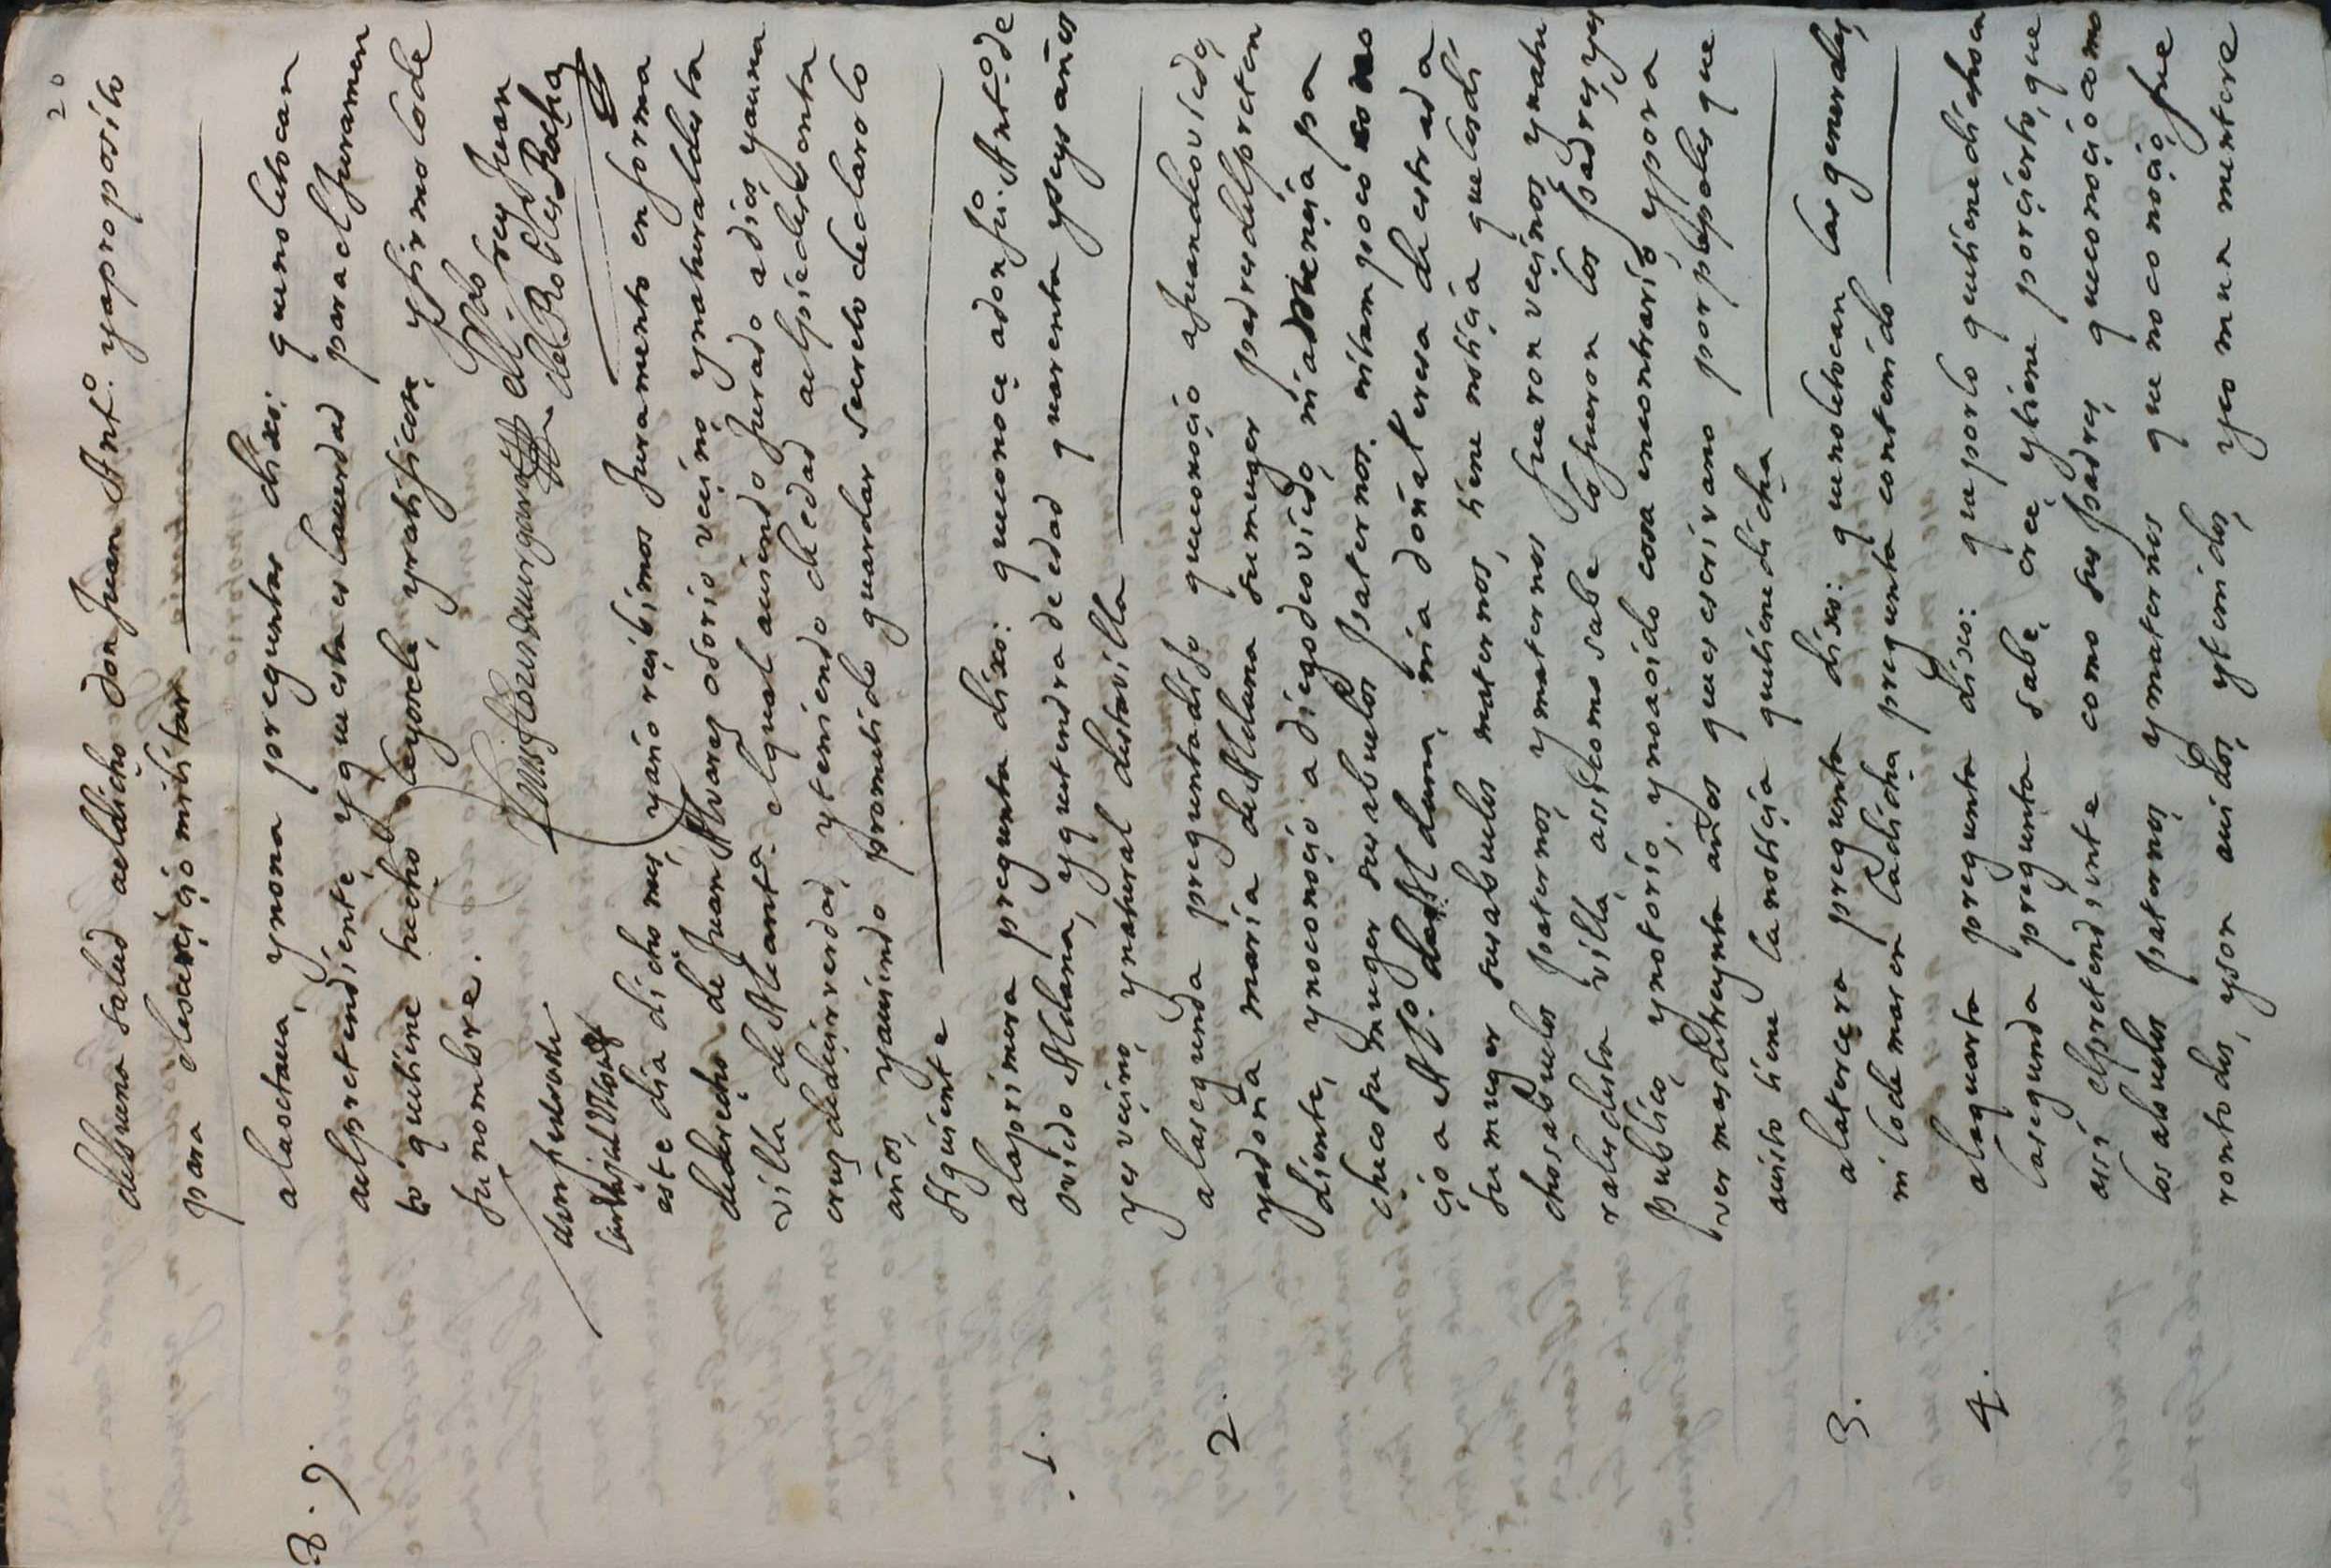 20
de buena salud aeldicho don Juan Antº. yaproposito
para elexercicio militar
8. 9. alaoctaua, ynona preguntas dixo: quenoletocan
aelpretendiente, yqueesta es laverdad para el Juramen
to quetiene hecho leyosele, yratificose, yfirmolo de
su nombre.
don pedro de
Luis Hurdemungaray
Ldo frey Juan
de Robles Rocha
este dia dicho mes, yaño recibimos Juramento en forma
de derecho de Juan Alvarez osorio vecino, ynatural desta
villa de Alcantª. elqual auiendo Jurado a dios, yauna
cruz dedecir verdad, yteniendo de edad de sesenta
años, yauiendo prometido guardar secreto declaro lo
siguiente
1. alaprimera pregunta dixo: queconoce adonJuº. Antº. de
ovido Aldana, yquetendra de edad quarenta yseys años
yesvecino, ynatural destavilla
2. alasegunda preguntadijo queconocio aJuandeovido,
yadoña maria deAldana sumuger padresdelpreten
diente, ynoconocio a diegodeovido, ni a
checo su muger sus abuelos paternos. nitampoco cono
cio a Alº. de Aldana, nia doña teresa de estrada
sumuger susabuelos maternos, tiene noticia quelosdi
chosabuelos paternos, ymaternos fueron vecinos, ynatu
rales desta villa, assi como sabe lo fueron los padres, yes
publico, ynotorio, ynoaoido cosa en contrario, ypora
ver mas de treynta años que es escrivano por papeles que
avisto tiene la noticia quetiene dicha
3. alatercera pregunta dixo: quenoletocan las generales,
ni lo demas en ladicha pregunta contenido
4. alaquarta pregunta dixo: que por lo quetiene dicho en
lasegunda pregunta sabe, cree, ytiene por cierto, que
assi elpretendiente como sus padres, queconocio como
los abuelos paternos, ymaternos que no conocio, fue
ron todos, yson auidos, ytenidos, ycomunmente re